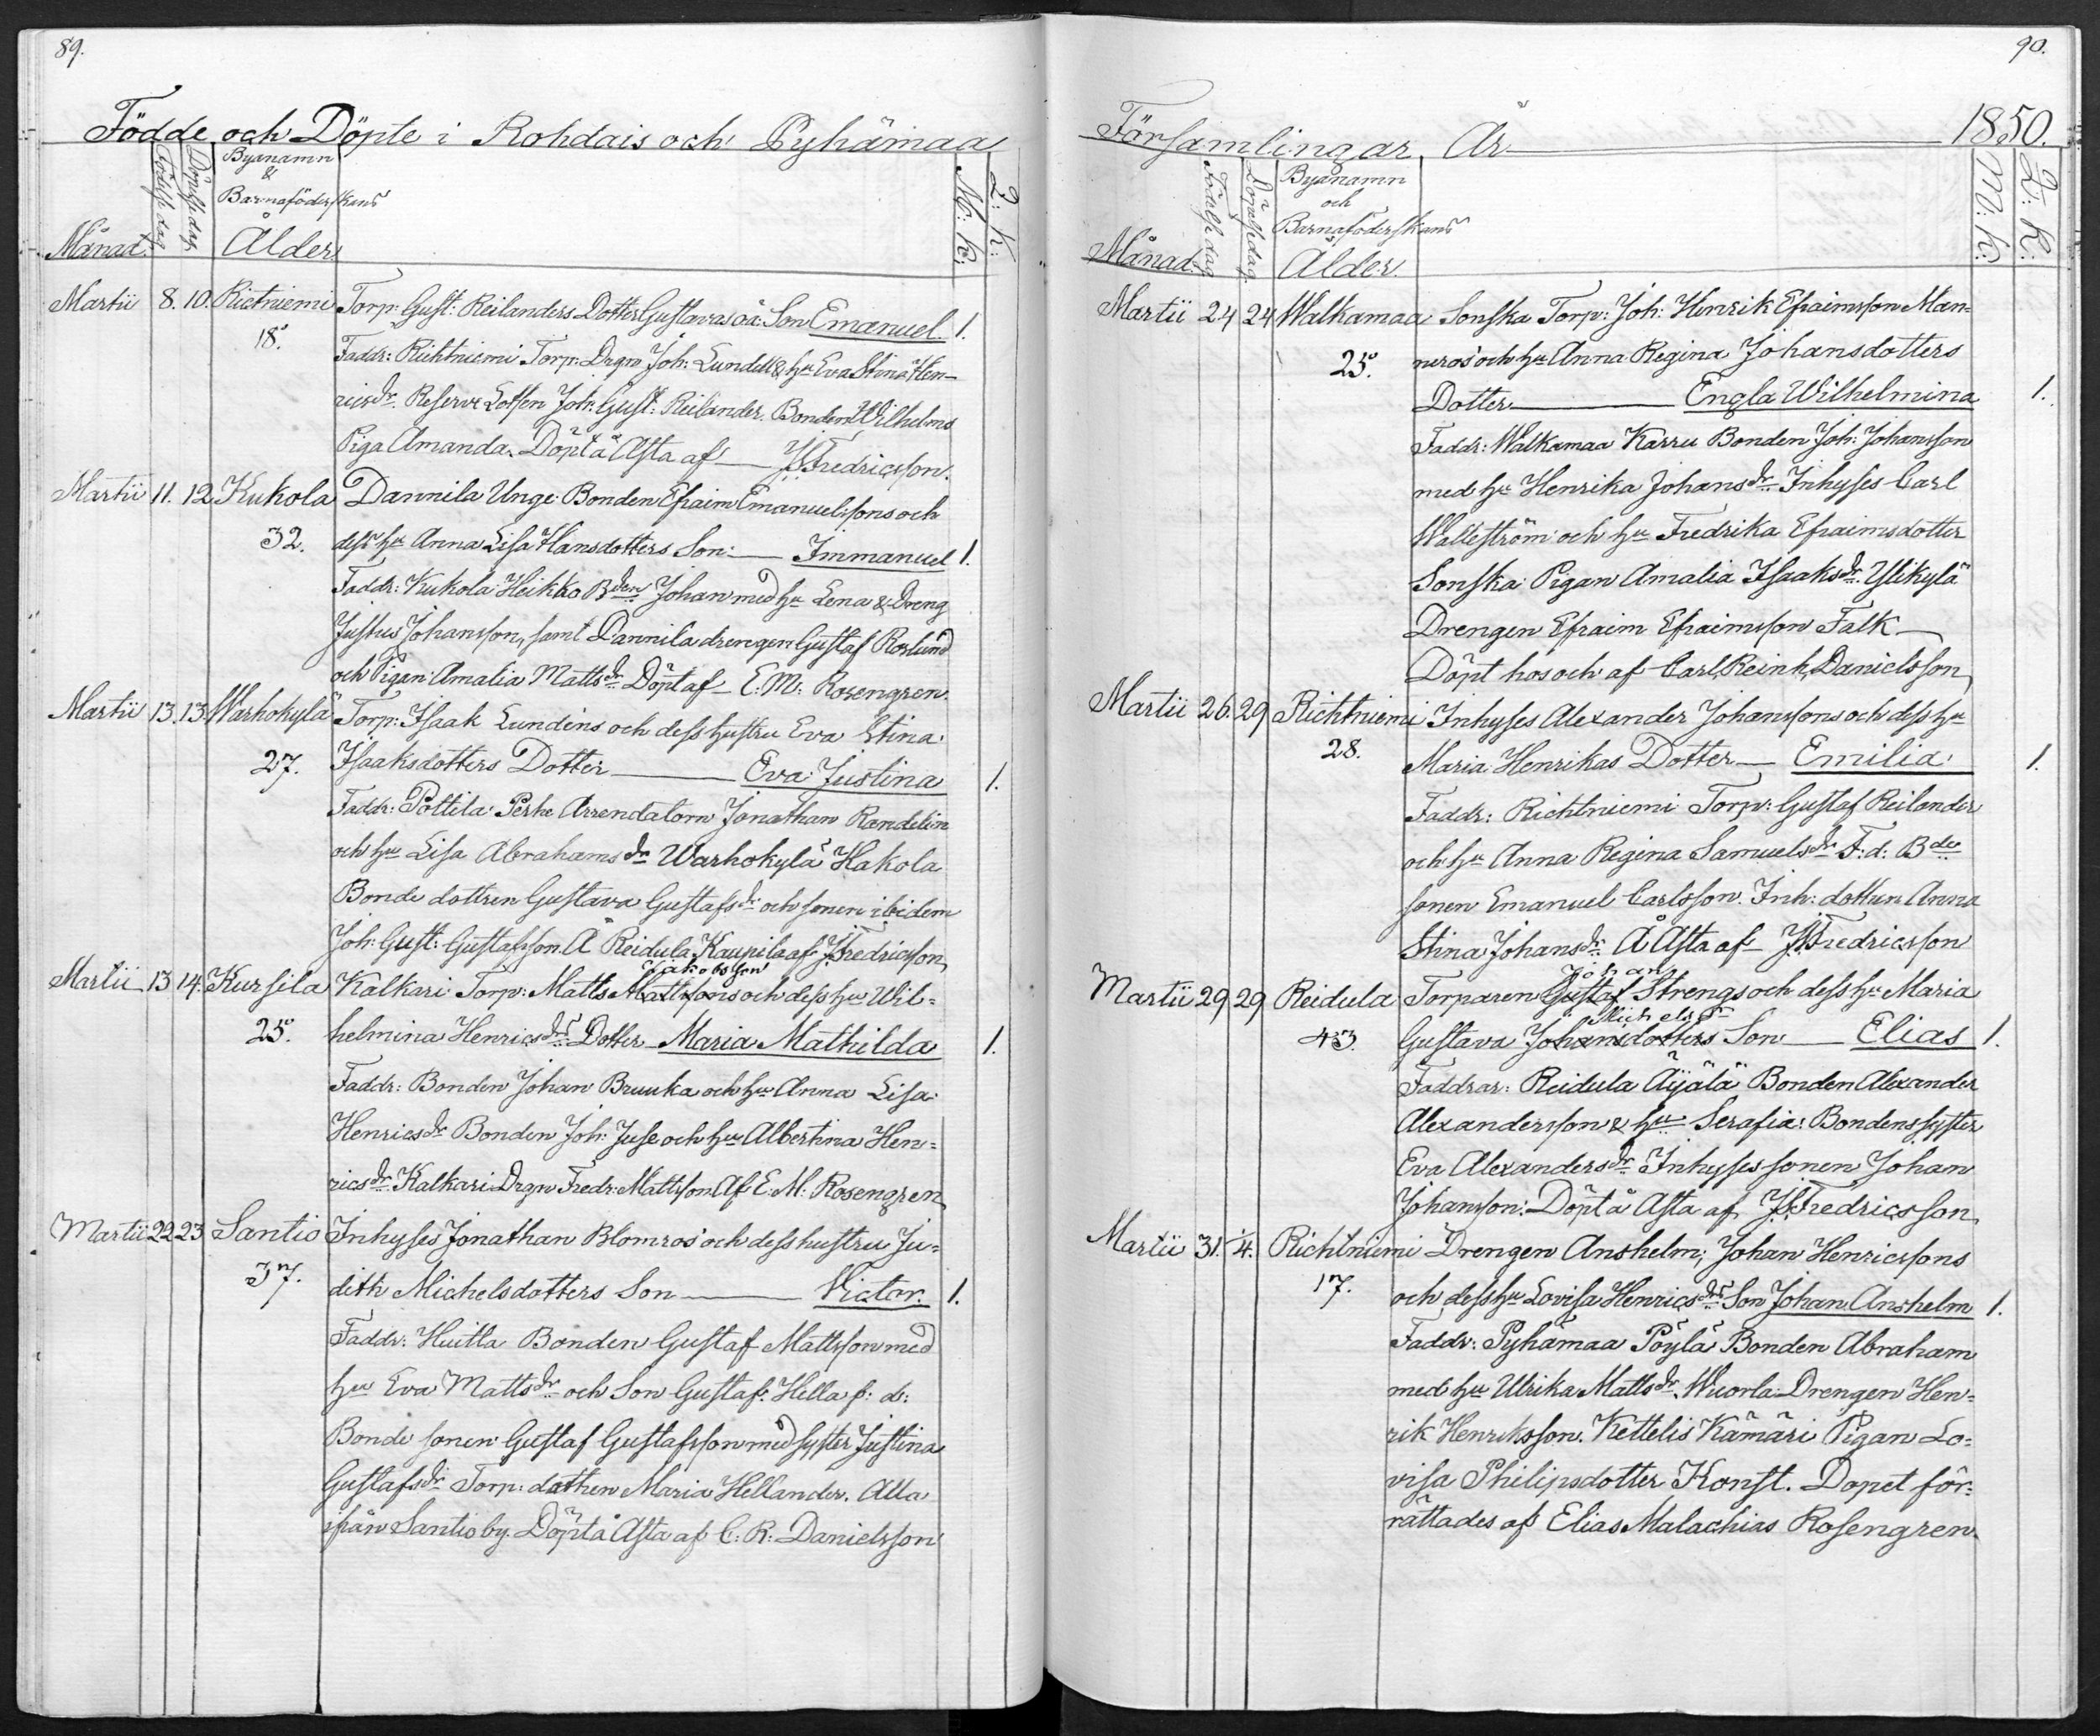 89.
Födde och Döpte i Rohdais och Pyhämaa
Månad.
Födelse dag
Döpelse dag
Byanamn
&
Barnaföderskans
Ålder
M: K:
Q: K:
Martii 8. 10. Richtniemi Torp: Gust: Reilanders Dotter Gustavas oä: Son Emanuel. 1.
18. Faddr: Richtniemi Torp: Drgn Joh: Lundell & hu Eva Stina Hen-
ricsdr. Reserve Lotsen Joh: Gust: Reilander. Bonden Wilhelms
Piga Amanda. Döpt å Asta af — J. Fredricsson.
Martii 11. 12 Kukola Dannila Unge Bonden Efraim Emanuelssons och
32. dess hu Anna Lisa Hansdotters Son: — Immanuel 1.
Faddr: Kukola Heikko Bden Johan med hu Lena & Dreng
Justus Johansson, samt Dannila drengen Gustaf Roslund
och Pigan Amalia Mattsdr Döpt af — E: M: Rosengren.
Martii 13. 13 Warhokylä Torp: Isaak Lundens och dess hustru Eva Stina
27. Isaaksdotters Dotter — Eva Justina 1.
Faddr: Pottila Perhe Arrendatorn Jonathan Randelin
och hu Lisa Abrahamsdr Warhokylä Hakola
Bonde dottren Gustava Gustafsdr och sonen ibidem
Joh: Gust: Gustafsson. Å Reidula Kaupila af J. Fredricsson,
Jakobsson
Martii 13 14. Kursila Kalkari Torp: Matts Mattssons och dess hu Wil=
25. helmina Henricsdrs Dotter — Maria Mathilda 1.
Faddr: Bonden Johan Bruuka och hu Anna Lisa
Henricsdr Bonden Joh: Juse och hu Albertina Hen=
ricsdr. Kalkari Drgn Fredr: Mattsson Af E: M: Rosengren,
Martii 22 23 Santio Inhyses Jonathan Blomros och dess hustru Ju=
37. dith Michelsdotters Son — Victor. 1.
Faddr: Huitla Bonden Gustaf Mattsson med
hu Eva Mattsdr och Son Gustaf. Hella f: d:
Bonde sonen Gustaf Gustafsson med syster Justina
Gustafsdr Torp: dottren Maria Hellander. Alla
ifrån Santio by. Döpt å Asta af C: R: Danielsson
90.
Församlingar År 1850.
Månad.
Födelse dag
Döpelse dag
Byanamn
och
Barnaföderskans
Ålder
M: K:
Q: K:
Martii 24 24 Walkamaa Sonska Torp: Joh: Henrik Efraimsson Man=
25. neros och hu Anna Regina Johansdotters
Dotter — Engla Wilhelmina 1.
Faddr: Walkamaa Karru Bonden Joh: Johansson
med hu Henrika Johansdr. Inhyses Carl
Walleström och hu Fredrika Efraimsdotter
Sonska Pigan Amalia Isaaksdr. Ylikylä
Drengen Efraim Efraimsson Falk —
Döpt hos och af Carl Reinh. Danielsson,
Martii 26. 29 Richtniemi Inhyses Alexander Johanssons och dess hu
28. Maria Henrikas Dotter — Emilia 1.
Faddr: Richtniemi Torp: Gustaf Reilander
och hu Anna Regina Samuelsdr F: d: Bde
sonen Emanuel Carlsson. Inh: dottren Anna
Stina Johansdr. Å Asta af J. Fredricsson
Johan
Martii 29 29 Reidula Torparen Gustaf Strengs och dess hu Maria
Michelsdr
43. Gustava Johansdotters Son — Elias 1.
Faddrar: Reidula Äijälä Bonden Alexander
Alexandersson & hu Serafia: Bondens syster
Eva Alexandersdr Inhyses sonen Johan
Johansson: Döpt å Asta af J. Fredricsson,
Martii 31. 1/4. Richtniemi Drengen Anshelm, Johan Henricssons
17. och dess hu Lovisa Henricsdrs Son Johan Anshelm 1.
Faddr: Pyhämaa Pöylä Bonden Abraham
med hu Ulrika Mattsdr. Wuorla Drengen Hen=
rik Henriksson. Kettelis Kämäri Pigan Lo=
visa Philipsdotter Konst. Dopet för=
rättades af Elias Malachias Rosengren.